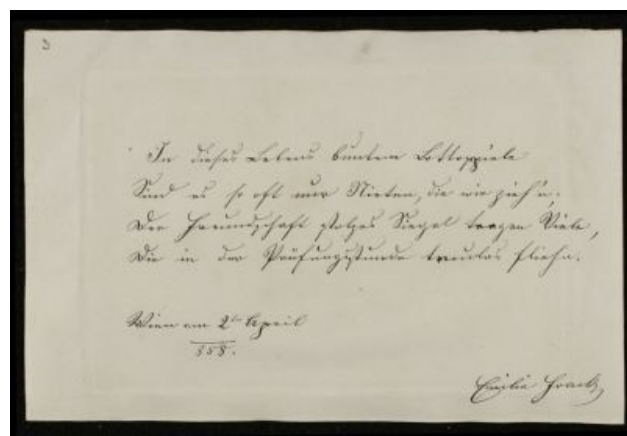 3
In dieses Lebens buntem Lottospiele
Sind es so oft nur Nieten, die wir zieh'n.
Der Freundschaft stolzes Siegel tragen Viele,
Die in der Prüfungsstunde treulos fliehn.
Wien am 2ten April
858.
Emilie